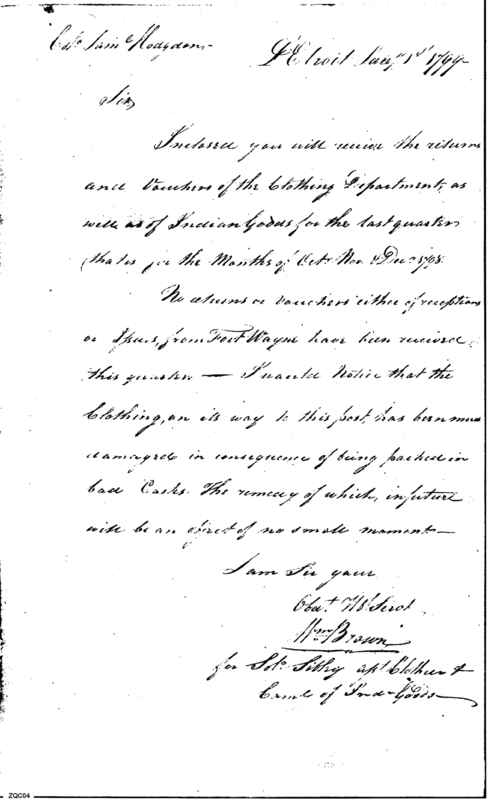 Col. Sam.l Hodgdon
D'Etroit Jan.y 1st 1799
Sir,
Inclosed you will receive the returns
and Vouchers of the Clothing Department, as
well as of Indian Goods for the last quarter
that is for the Months of Oct. Nov. & Dec.r 1798.
No returns or Vouchers either of receptions
or Issues, from Fort Wayne have been received
this quarter — I would Notice that the
Clothing, on its way to this post, has been much
damaged in consequence of being packed in
bad Casks. The remedy of which, in future
will be an object of no small moment —
I am Sir your
Obd.t H.l Serv.t
Wm Brown
for Sol. Sibley Clothier &
of Ind. Goods
ZQC04